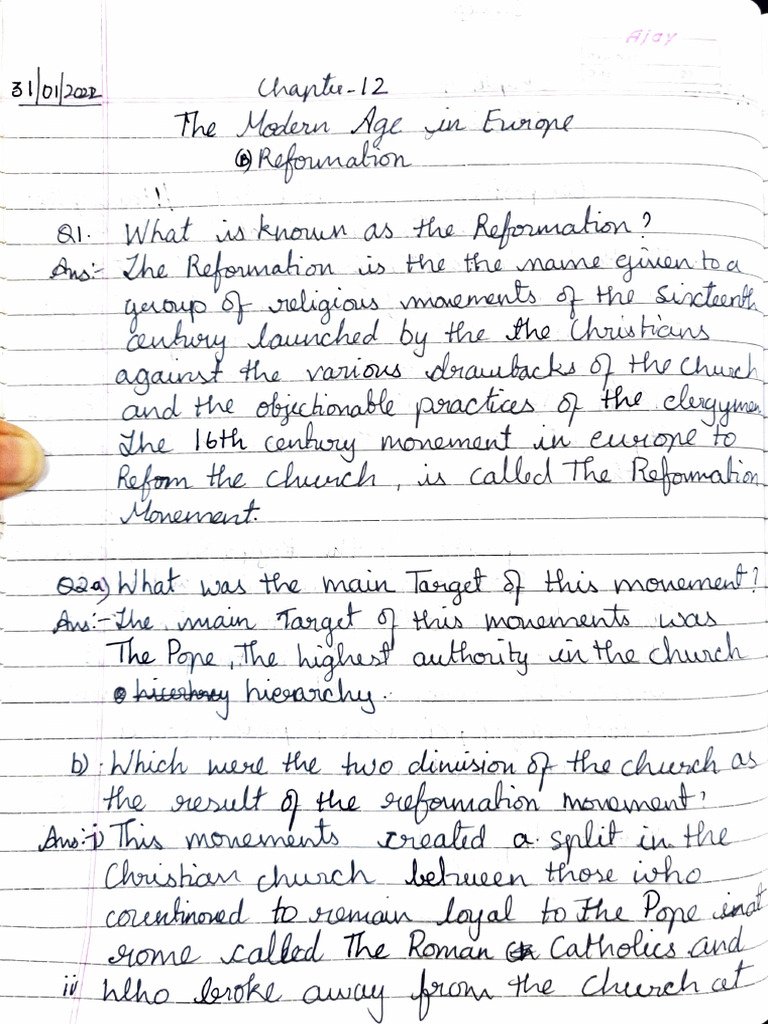 Ajay
31/01/2022
Chapter-12
The Modern Age in Europe
(B) Reformation
Q1. What is known as the Reformation?
Ans:- The Reformation is the the name given to a
group of religious movements of the sixteenth
century launched by the the Christians
against the various drawbacks of the church
and the objectionable practices of the clergymen
The 16th century monement in europe to
Refom the church, is called The Reformation
Monement.
Q2a) What was the main Target of this monement?
Ans:- The main Target of this monements was
The Pope, The highest authority in the church
hierarchy.
b) Which were the two dinision of the church as
the result of the reformation movement?
Ans:-i) This monements created a split in the
Christian church between those who
countinoued to remain loyal to the Pope at
rome called The Roman Catholics and
ii) who broke away from the church at